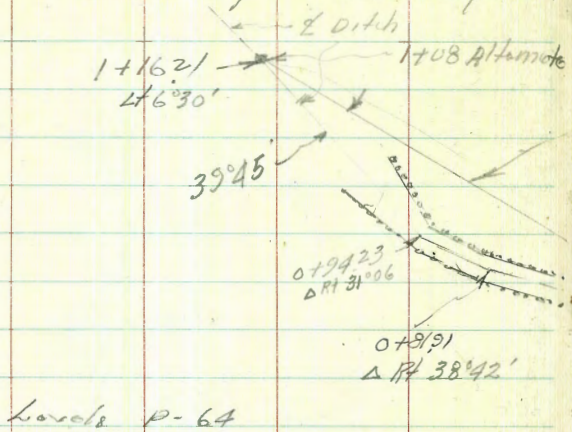 ℄ Ditch
1+16.21
Lt 6°30'
1+08 Alternate
39°45'
0+94.23
Δ Rt 31°06
0+81.91
Δ Rt 38°42'
Levels P-64